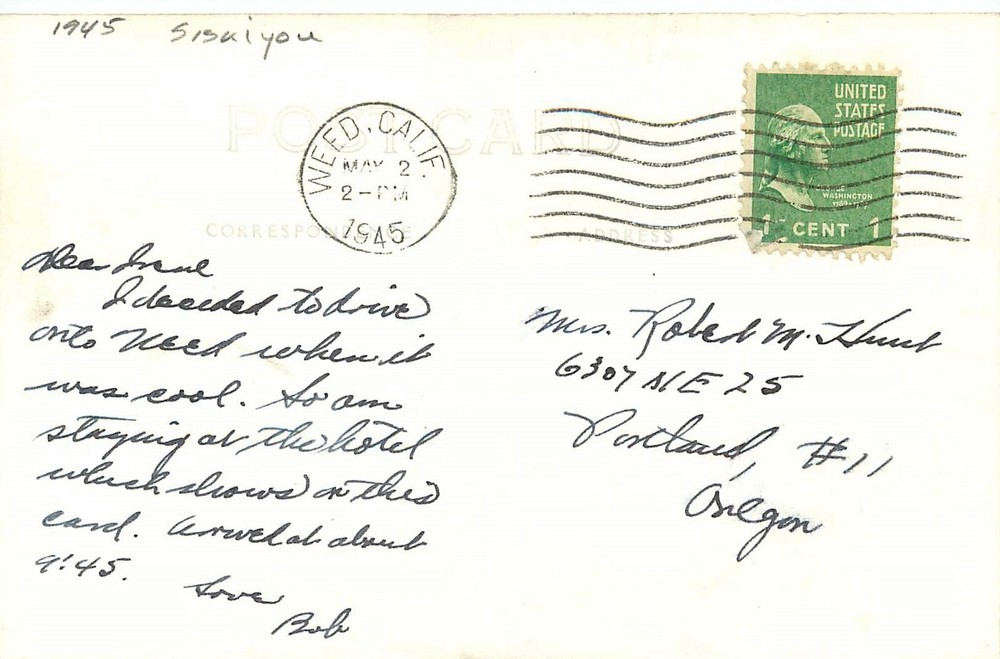 1945 Siskiyou
POST CARD
WEED, CALIF.
MAY 2
2-PM
1945
UNITED
STATES
POSTAGE
WASHINGTON
1 CENT 1
CORRESPONDENCE
ADDRESS
Dear Irene
I decided to drive
onto Weed when it
was cool. So am
staying at the hotel
which shows on this
card. Arrived at about
9:45.
Love
Bob
Mrs. Robert M. Hunt
6307 NE 25
Portland, #11
Oregon